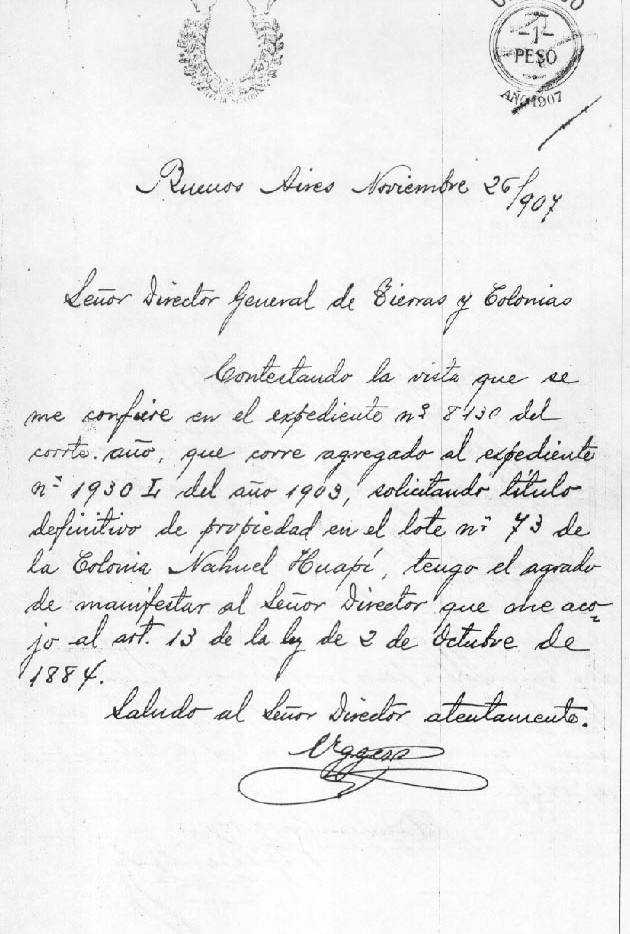 -1-
PESO
AÑO 1907
Buenos Aires Noviembre 26/907
Señor Director General de Tierras y Colonias
Contestando la vista que se
me confiere en el expediente nº 8430 del
corrte. año, que corre agregado al espediente
nº 1930 L del año 1903, solicitando título
definitivo de propiedad en el lote nº 73 de
la Colonia Nahuel Huapí, tengo el agrado
de manifestar al Señor Director que me aco-
jo al art. 13 de la ley de 2 de Octubre de
1884.
Saludo al Señor Director atentamente.